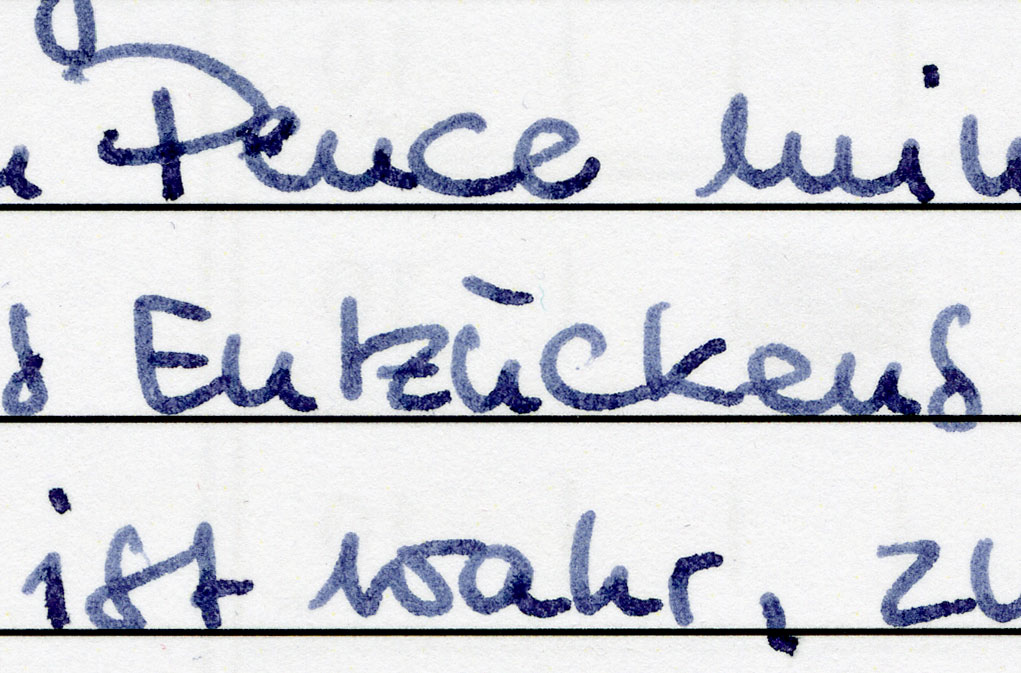 Pence
Entzückens
ist wahr, zu